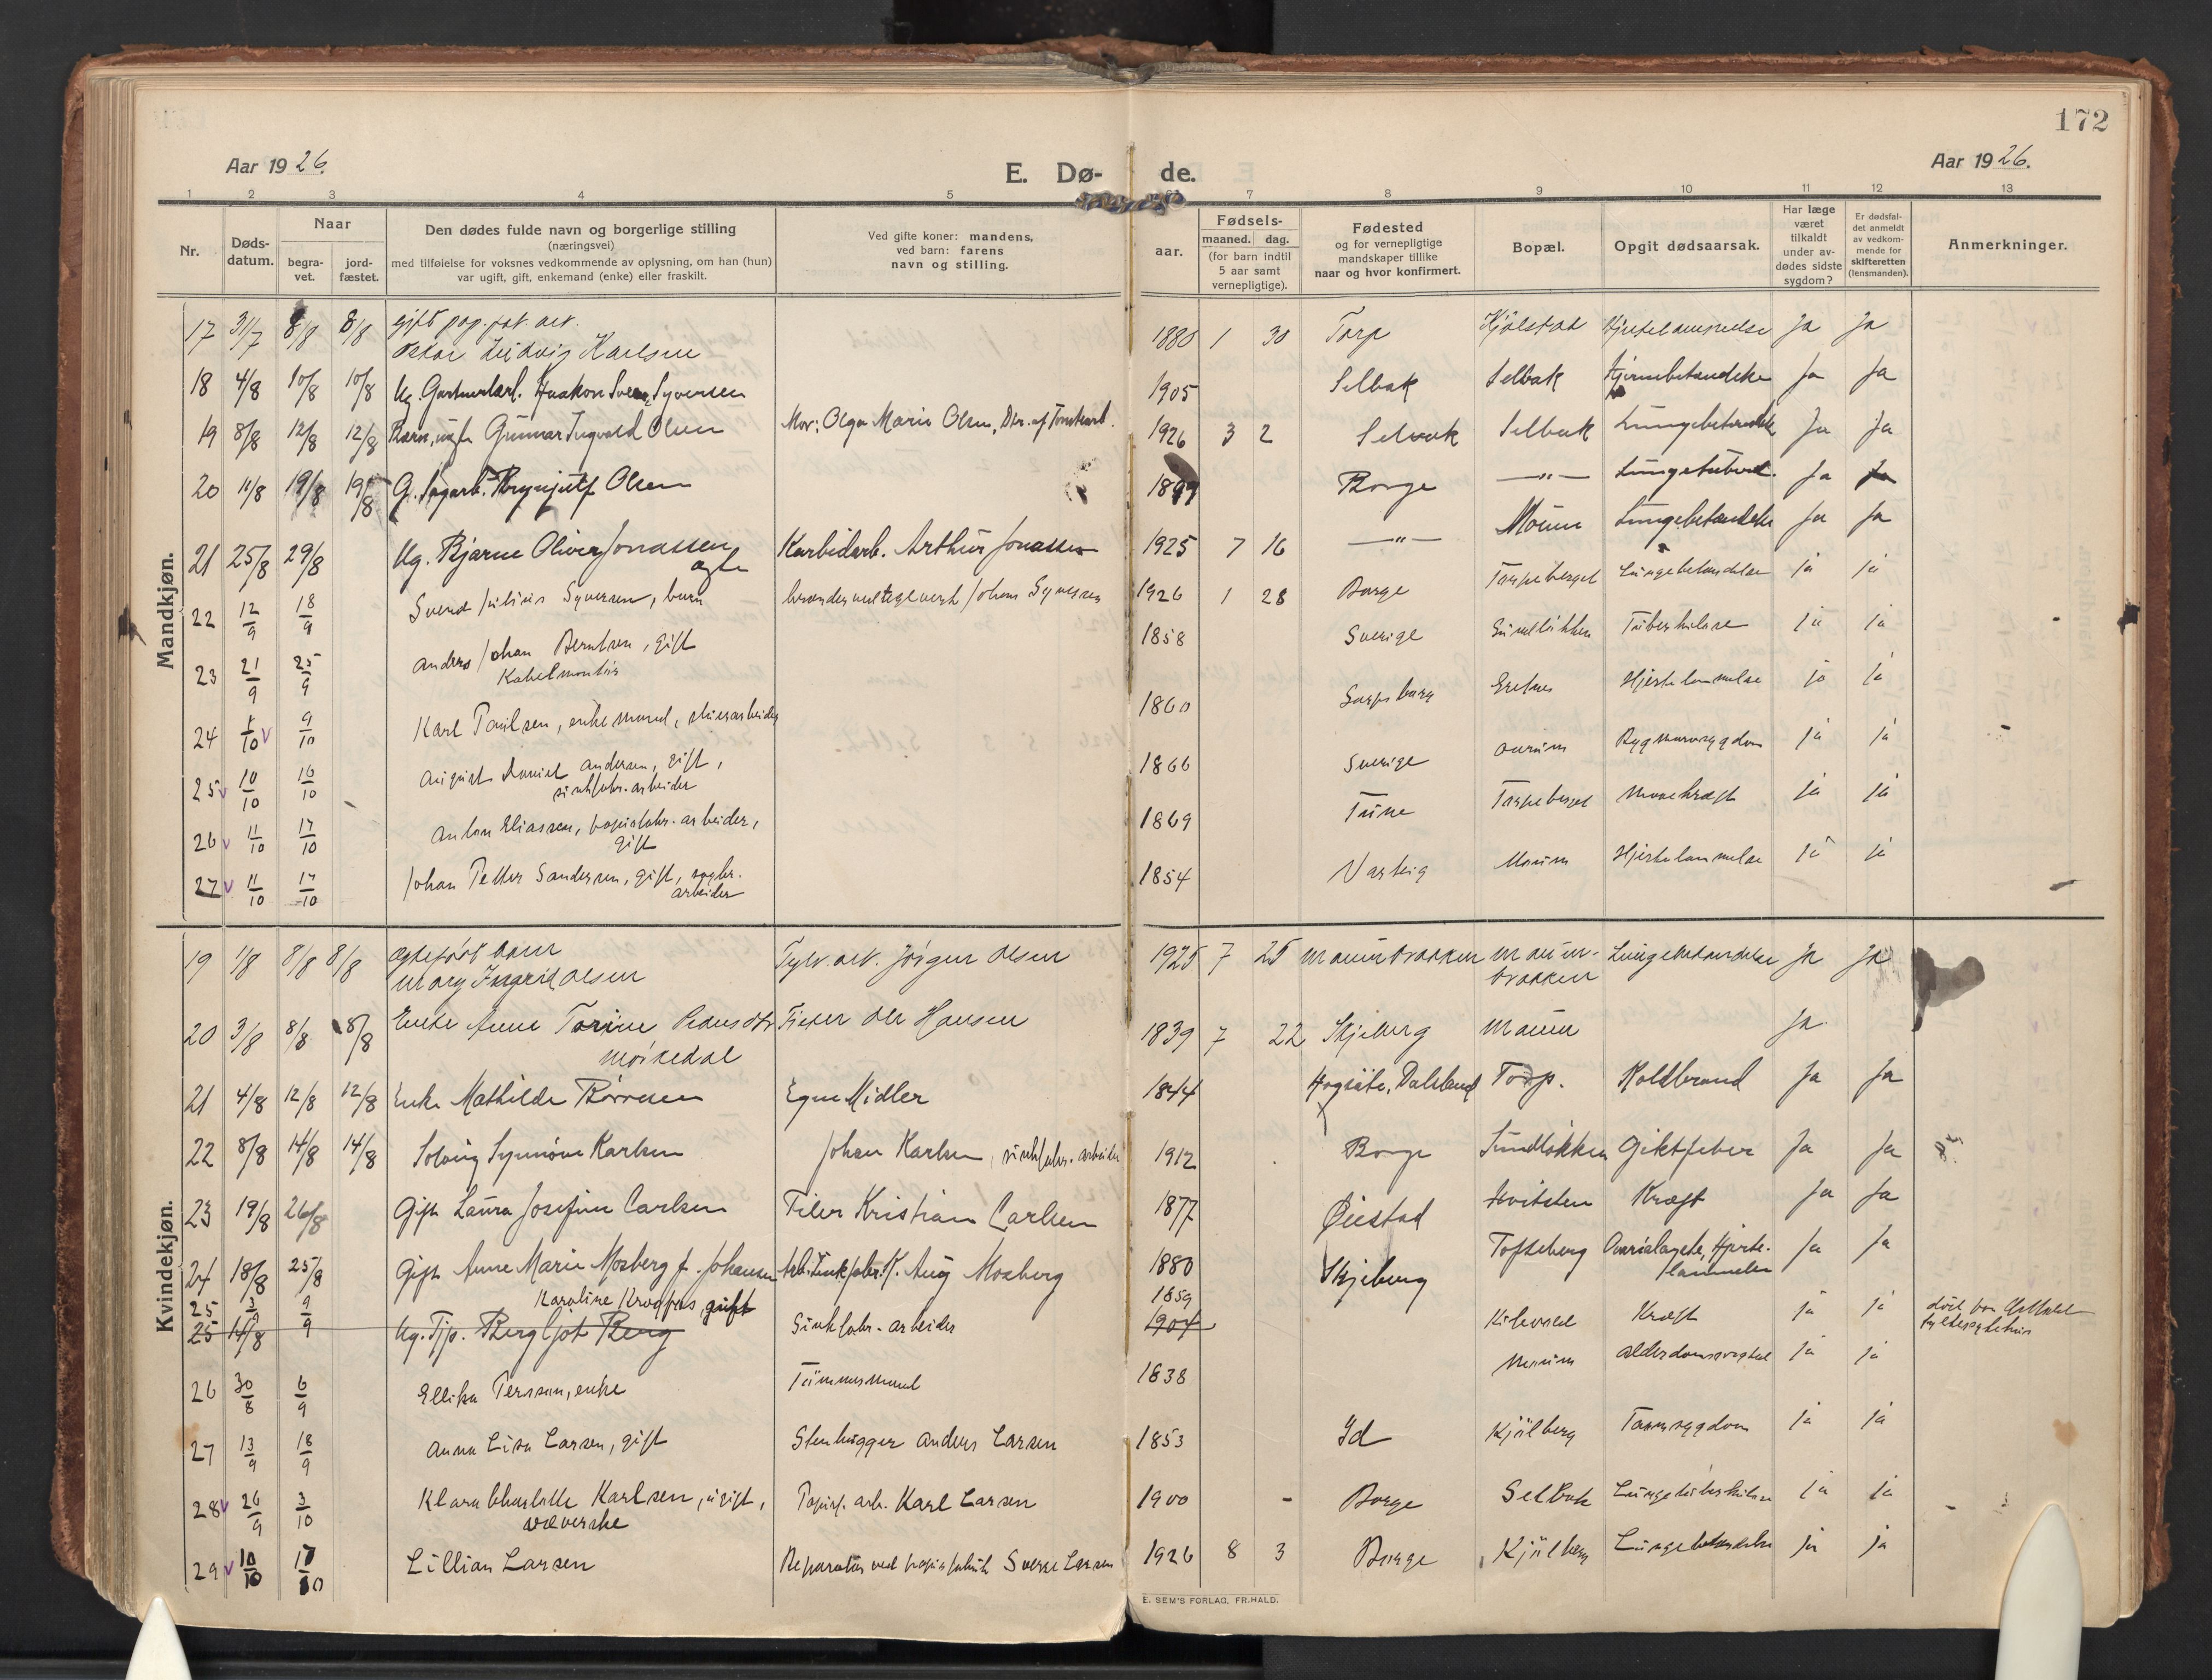 172
Aar 1926.
E. Dø- de.
Aar 1926.
1 2 3 4 5 7 8 9 10 11 12 13
Nr.
Døds-
datum.
Naar
begra-
vet.
jord-
fæstet.
Den dødes fulde navn og borgerlige stilling
(næringsvei)
med tilføielse for voksnes vedkommende av oplysning, om han (hun)
var ugift, gift, enkemand (enke) eller fraskilt.
Ved gifte koner: mandens,
ved barn: farens
navn og stilling.
aar.
Fødsels-
maaned. dag.
(for barn indtil
5 aar samt
vernepligtige).
Fødested
og for vernepligtige
mandskaper tillike
naar og hvor konfirmert.
Bopæl.
Opgit dødsaarsak.
Har læge
været
tilkaldt
under av-
dødes sidste
sygdom?
Er dødsfal-
det anmeldt
av vedkom-
mende for
skifteretten
(lensmanden).
Anmerkninger.
Mandkjøn.
17 31/7 8/8 8/8 gift pap.fab.arb.
Oskar Ludvig Karlsen 1880 1 30 Torp Kjølstad Hjertelammelse Ja Ja
18 4/8 10/8 10/8 Ug. Gartnerlærl. Haakon Syversen 1905 Selbak Selbak Hjernebetændelse Ja Ja
19 8/8 12/8 12/8 Barn, uegte Gunnar Ingvald Olsen Mor: Olga Marie Olsen, 1926 3 2 Selbak Selbak Lungebetændelse Ja Ja
20 11/8 19/8 19/8 G. Sagarb. Brynjulf Olsen 1899 Borge —"— Lungetuberk. Ja Ja
21 25/8 29/8 Ug. Bjarne Oliver Jonassen
ægte Karbidarb. Arthur Jonassen 1925 7 16 —"— Moum Lungebetændelse Ja Ja
22 12/9 18/9 Sverd Julius Syversen, barn Johans Syversen 1926 1 28 Borge Torpeberget Lungebetændelse ja ja
23 21/9 25/9 Anders Johan Berntsen, gift
Kabelmontør 1858 Sverige Sundløkken Tuberkulose ja ja
24 1/10 9/10 Karl Paulsen, enkemand, 1860 Sarpsborg Hjertelammelse ja ja
25 10/10 16/10 August Daniel Andersen, gift,
sinkfabr. arbeider 1866 Sverige Moum Rygmarvsygdom ja ja
26 11/10 17/10 Anton Eliassen, papirfabr. arbeider,
gift 1869 Tune Torpeberget Mavekræft ja ja
27 11/10 17/10 Johan Petter Sandersen, gift, sagbr.
arbeider 1854 Varteig Moum Hjertelammelse ja ja
Kvindekjøn.
19 1/8 8/8 8/8 Ægtefødt barn
Mary Ingrid Olsen Jørgen Olsen 1925 7 25 Moumbrakken Moum-
brakken Lungebetændelse Ja Ja
20 3/8 8/8 8/8 Enke Anne Torine Pedersdtr
Mørkedal Fisker Ole Hansen 1839 7 22 Skjeberg Moum Ja
21 4/8 12/8 12/8 Enke Mathilde Børresen Egne Midler 1844 Dalsland Torp. Koldbrand Ja Ja
22 8/8 14/8 14/8 Solveig Synnøve Karlsen Johan Karlsen, sinkfabr. arbeider 1912 Borge Sundløkken Giktfeber Ja Ja
23 19/8 26/8 Gift Laura Josefine Carlsen Filer Kristian Carlsen 1877 Øiestad Hvitsten Kræft Ja Ja
24 18/8 25/8 Gift Anne Marie Mosberg f. Johansen Arb. Zinkfabr. K. Aug Mosberg 1880 Skjeberg Tofteberg Hjerte-
lammelse Ja Ja
25 3/9 9/9 Karoline gift Sinkfabr. arbeider 1859 Kræft ja ja
25 14/8 Ug. Tjp. Bergljot Berg 1904
26 30/8 6/9 Ellika Persson, enke Tømmermand 1838 Moum Alderdomssvaghed ja ja
27 13/9 18/9 Anna Lisa Larsen, gift Stenhugger Anders Larsen 1853 Id Kjølberg Tarmsygdom ja ja
28 26/9 3/10 Klara Charlotte Karlsen, ugift,
væverske Papirf. arb. Karl Larsen 1900 - Borge Selbak Lungetuberkulose ja ja
29 10/10 17/10 Lillian Larsen Reparatør ved papirfabrik Sverre Larsen 1926 8 3 Borge Kjølberg Lungebetændelse ja ja
E. SEM'S FORLAG, FR.HALD.